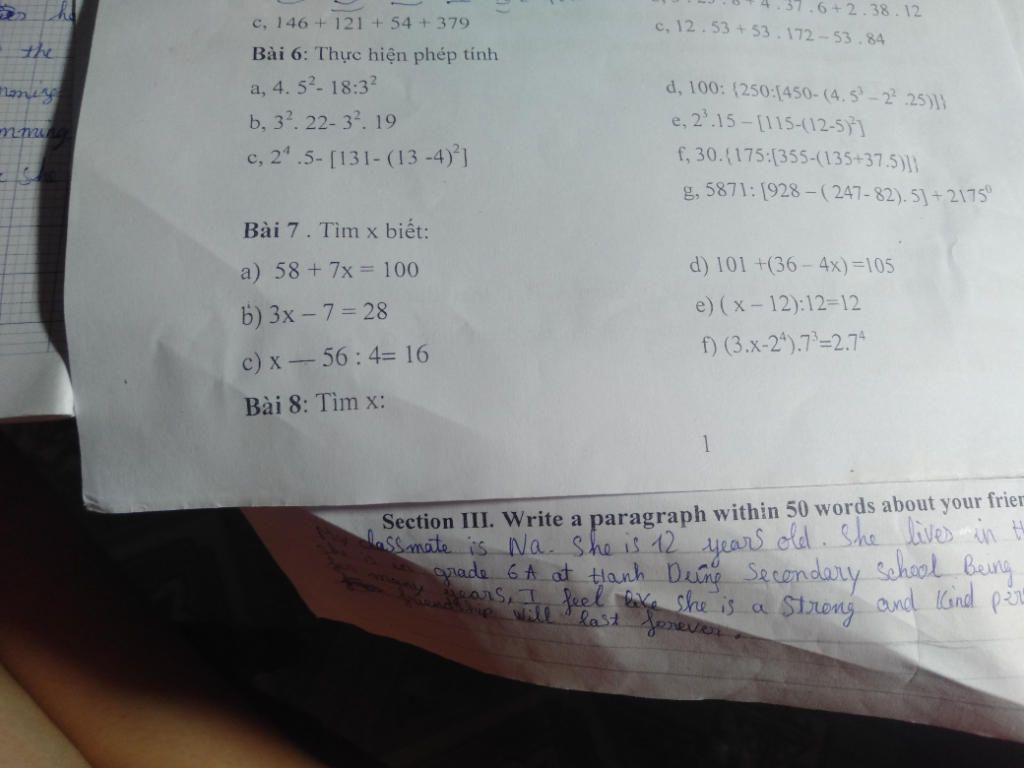 c, 146 + 121 + 54 + 379
4 . 37 . 6 + 2 . 38 . 12
c, 12 . 53 + 53 . 172 – 53 . 84
Bài 6: Thực hiện phép tính
a, 4. 5²- 18:3²
b, 3². 22- 3². 19
c, 2⁴ .5- [131- (13 -4)²]
d, 100: {250:[450- (4. 5³ – 2² .25)]}
e, 2³.15 – [115-(12-5)²]
f, 30.{175:[355-(135+37.5)]}
g, 5871: [928 – ( 247- 82). 5] + 2175⁰
Bài 7 . Tìm x biết:
a) 58 + 7x = 100
b) 3x – 7 = 28
c) x — 56 : 4= 16
d) 101 +(36 – 4x) =105
e) ( x – 12):12=12
f) (3.x-2⁴).7³=2.7⁴
Bài 8: Tìm x:
1
the
she
Section III. Write a paragraph within 50 words about your
classmate is Na. She is 12 years old. She lives in
grade 6A at Hanh Dung Secondary School Being
for many years, I feel like she is a strong and kind
friendship will last forever.